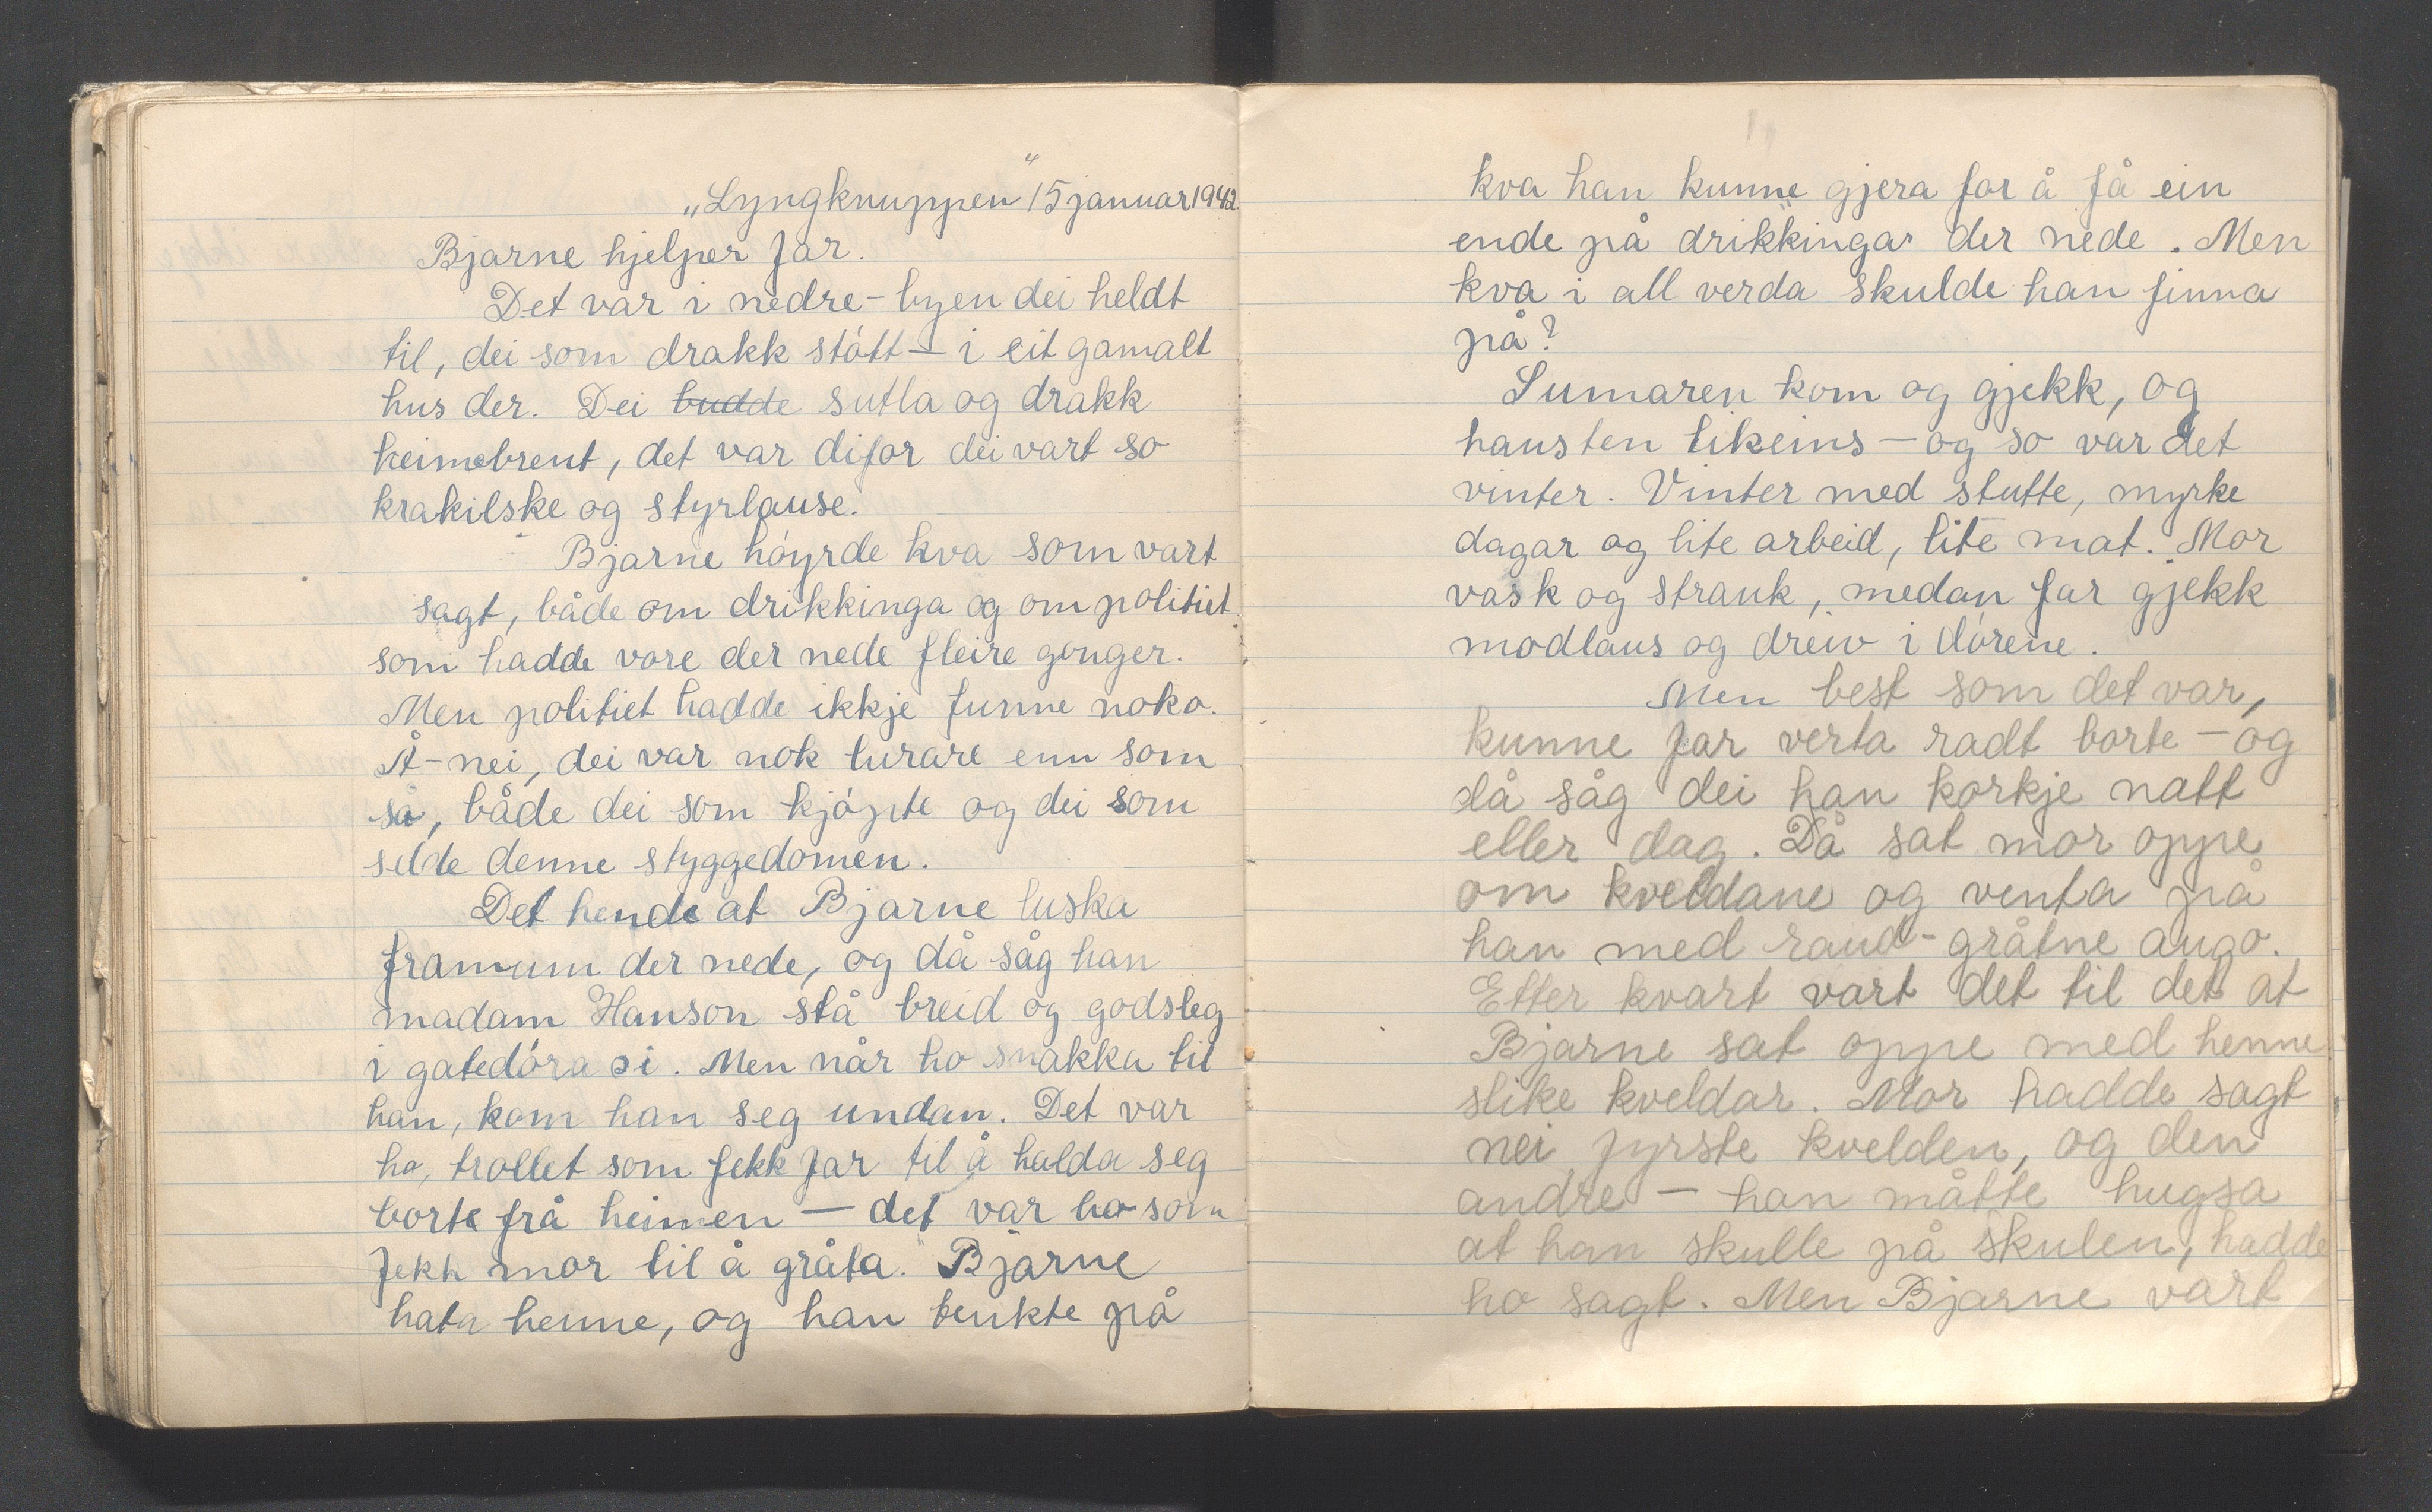 „Lyngknuppen" 15 januar 1942.
Bjarne hjelper far.
Det var i nedre-byen dei heldt
til, dei som drakk stótt – i eit gamalt
hus der. Dei budde sutla og drakk
heimebrent, det var difor dei vart so
krakilske og styrlause.
Bjarne hóyrde kva som vart
sagt, både om drikkinga og om politiet
som hadde vore der nede fleire gonger.
Men politiet hadde ikkje funne noko.
Å-nei, dei var nok lurare enn som
så, både dei som kjópte og dei som
selde denne styggedomen.
Det hende at Bjarne luska
framum der nede, og då såg han
madam Hanson stå breid og godsleg
i gatedóra si. Men når ho snakka til
han, kom han seg undan. Det var
ho, trollet som fekk far til å halda seg
borte frå heimen – det var ho som
fekk mor til å gråta. Bjarne
hata henne, og han tenkte på
kva han kunne gjera for å få ein
ende på drikkingar der nede. Men
kva i all verda skulde han finna
på?
Sumaren kom og gjekk, og
hausten likeins – og so var det
vinter. Vinter med stutte, myrke
dagar og lite arbeid, lite mat. Mor
vask og strauk, medan far gjekk
modlaus og dreiv i dórene.
Men best som det var,
kunne far verta radt borte – og
då såg dei han korkje natt
eller dag. Då sat mor oppe
om kveldane og venta på
han med raud-gråtne augo.
Etter kvart vart det til det at
Bjarne sat oppe med henne
slike kveldar. Mor hadde sagt
nei fyrste kvelden, og den
andre – han måtte hugsa
at han skulle på skulen, hadde
ho sagt. Men Bjarne vart